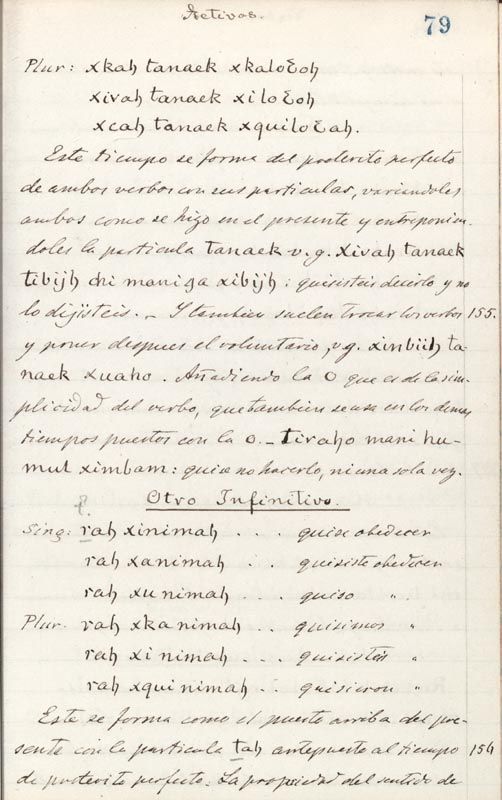 Activos.
79
Plur: xkah tanaek xkaloƐoh
xivah tanaek xiloƐoh
xcah tanaek xquiloƐah.
Este tiempo se forma del preterito perfecto
de ambos verbos con sus particulas, variandoles
ambos como se hizo en el presente y entreponien-
doles la particula tanaek v.g. xivah tanaek
tibijh chi maniga xibijh: quisisteis decirlo y no
lo dijisteis. - Y tambien suelen trocar los verbos 155.
y poner despues el voluntario, v.g. xinbijh ta-
naek xuaho. Añadiendo la O que es de la sim-
plicidad del verbo, que tambien se usa en los demas
tiempos puestos con la o. - tiraho mani hu-
mul ximbam: quise no hacerlo, ni una sola vez.
Otro Infinitivo.
Sing: rah xinimah . . . quise obedecer
rah xanimah . . . quisiste obedecer
rah xunimah . . . quiso "
Plur. rah xkanimah . . quisimos "
rah xinimah . . . quisisteis "
rah xquinimah . . quisieron "
Este se forma como el puesto arriba del pre-
sente con la particula tah antepuesto al tiempo 156
de preterito perfecto. La propiedad del sentido de